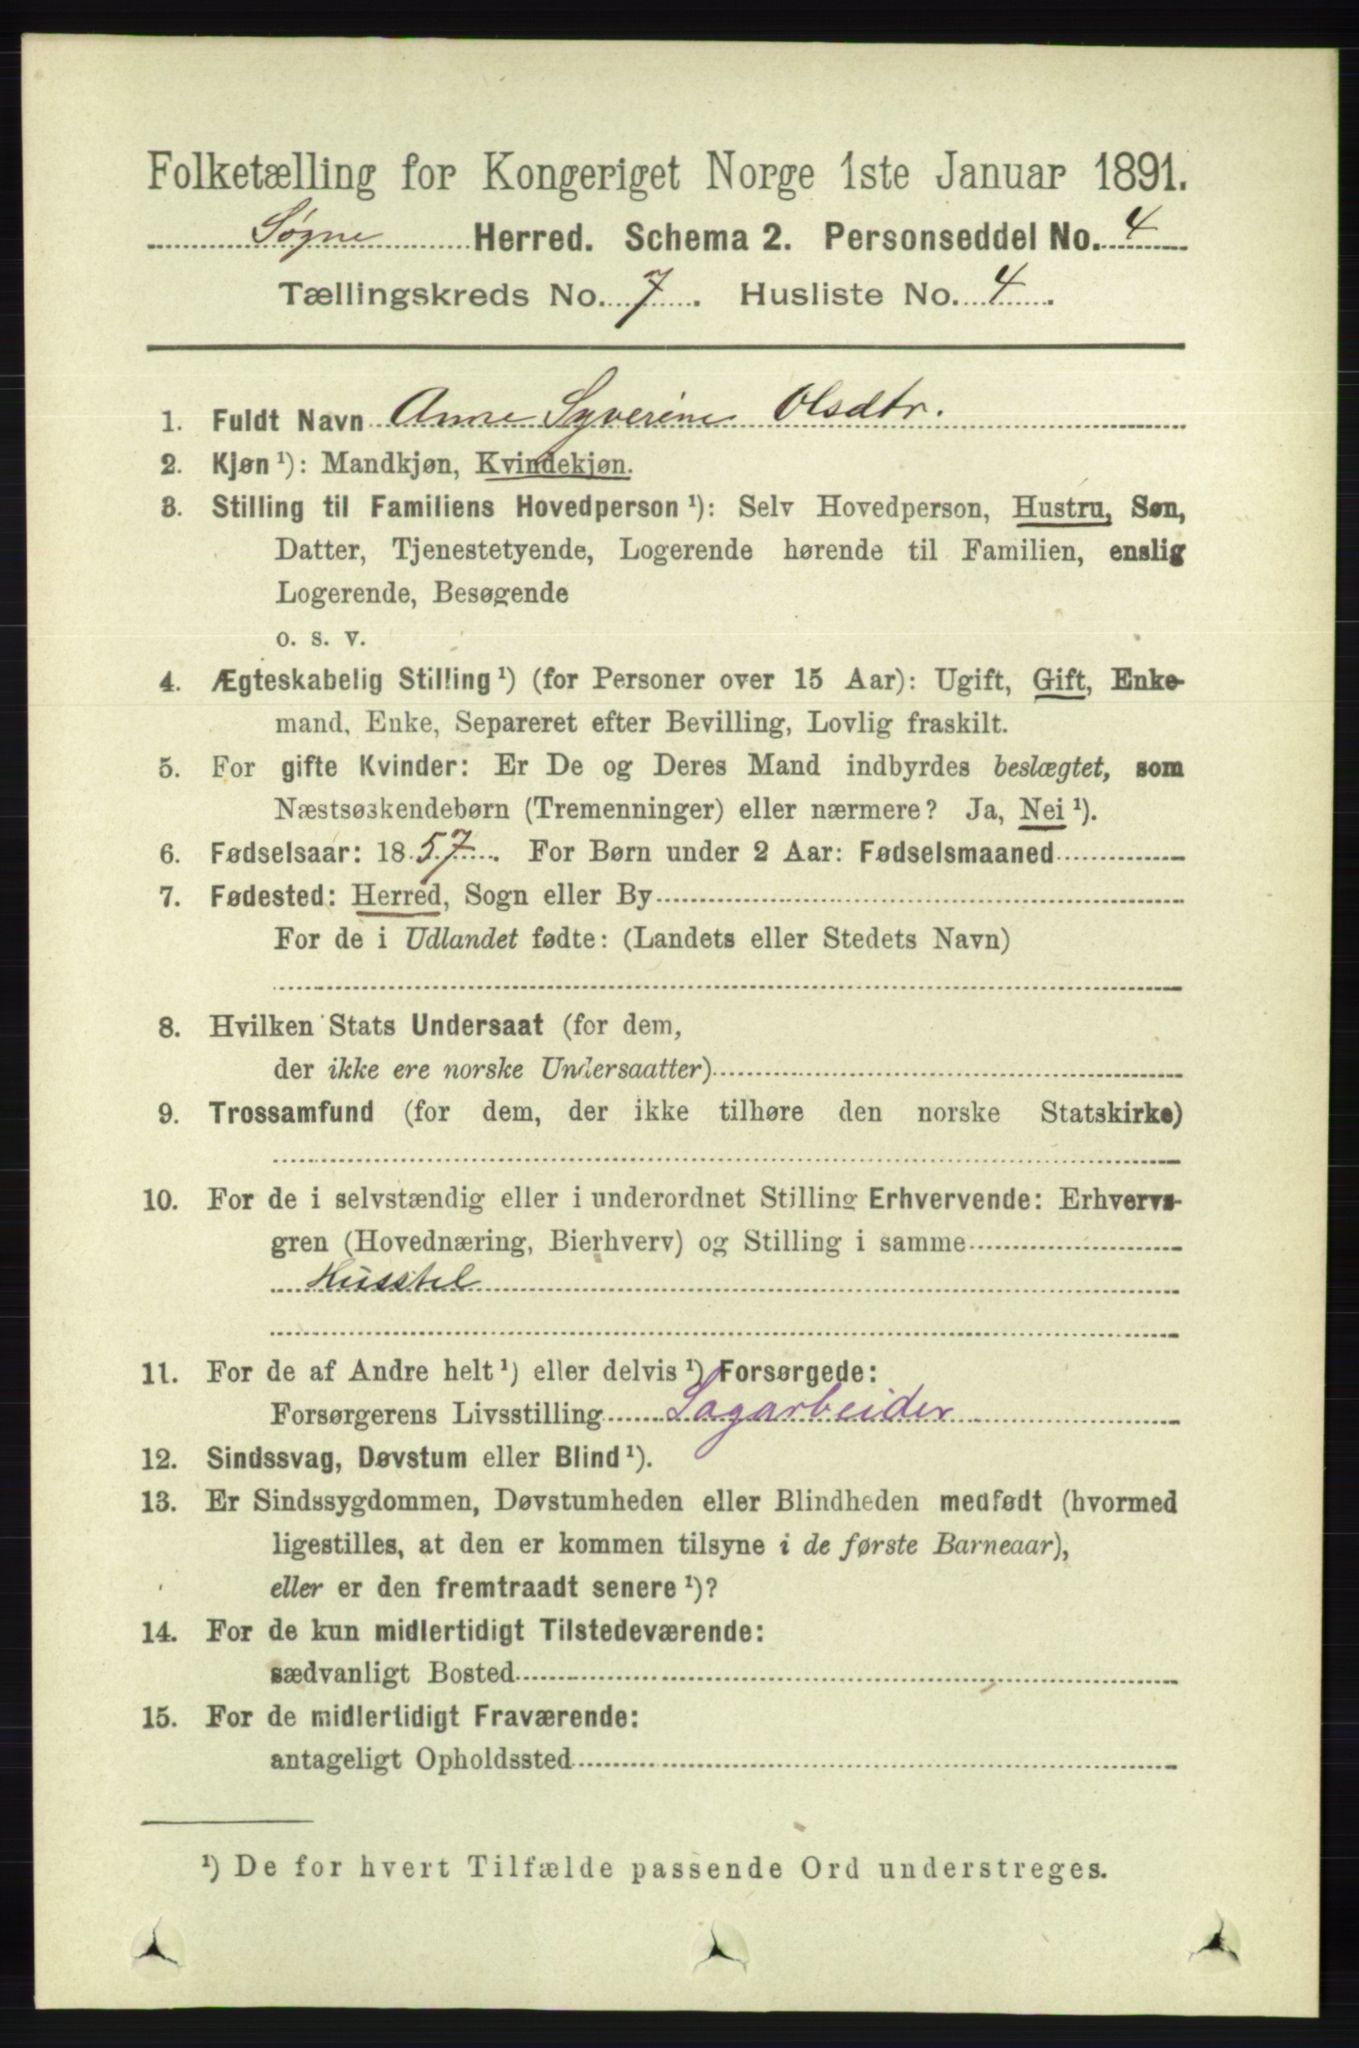 Folketælling for Kongeriget Norge 1ste Januar 1891.
Søgne Herred. Schema 2. Personseddel No. 4
Tællingskreds No. 7. Husliste No. 4.
1. Fuldt Navn Anne Syverine Olsdtr.
2. Kjøn¹): Mandkjøn, Kvindekjøn.
3. Stilling til Familiens Hovedperson¹): Selv Hovedperson, Hustru, Søn,
Datter, Tjenestetyende, Logerende hørende til Familien, enslig
Logerende, Besøgende
o. s. v.
4. Ægteskabelig Stilling¹) (for Personer over 15 Aar): Ugift, Gift, Enke-
mand, Enke, Separeret efter Bevilling, Lovlig fraskilt.
5. For gifte Kvinder: Er De og Deres Mand indbyrdes beslægtet, som
Næstsøskendebørn (Tremenninger) eller nærmere? Ja, Nei¹).
6. Fødselsaar: 1857. For Børn under 2 Aar: Fødselsmaaned
7. Fødested: Herred, Sogn eller By
For de i Udlandet fødte: (Landets eller Stedets Navn)
8. Hvilken Stats Undersaat (for dem,
der ikke ere norske Undersaatter)
9. Trossamfund (for dem, der ikke tilhøre den norske Statskirke)
10. For de i selvstændig eller i underordnet Stilling Erhvervende: Erhvervs-
gren (Hovednæring, Bierhverv) og Stilling i samme
Husstel
11. For de af Andre helt¹) eller delvis¹) Forsørgede:
Forsørgerens Livsstilling Sagarbeider
12. Sindssvag, Døvstum eller Blind¹).
13. Er Sindssygdommen, Døvstumheden eller Blindheden medfødt (hvormed
ligestilles, at den er kommen tilsyne i de første Barneaar),
eller er den fremtraadt senere¹)?
14. For de kun midlertidigt Tilstedeværende:
sædvanligt Bosted
15. For de midlertidigt Fraværende:
antageligt Opholdssted
¹) De for hvert Tilfælde passende Ord understreges.